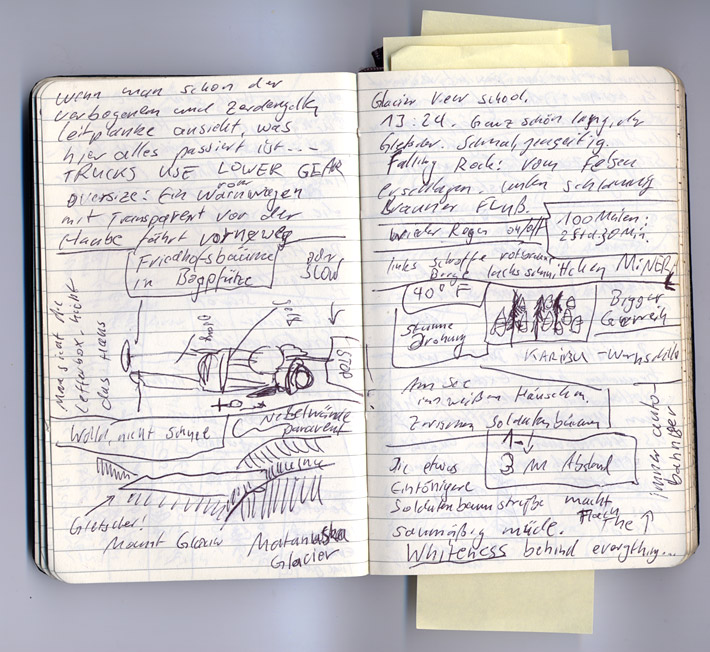 wenn man schon der
verbogenen und
Leitplanke ansieht, was
hier alles passiert ist---
TRUCKS USE LOWER GEAR
Oversize: Ein Warnwagen
mit Transparent vor der
Haube fährt vorneweg
Friedhofsbäume
in Baggpfütze
oder
SLOW
Man sieht die
Letterbox nicht
das Haus
STOP
Wolln nicht
Nebelwände
paravent
Gletscher!
Mount Glacier
Matanuska
Glacier
Glacier View School.
13:24. Ganz schön lang, der
Gletscher. Schmal,
Falling Rock: vom Felsen
erschlagen. unten
Brauner Fluß.
Wieder Regen on/off
100 Meilen:
2 Std 30 Min.
links schroffe
Berge
MINERT
40° F
stumme
Drohung
Bigger
Österreich
KARIBU-
Am See
im weißen Häuschen.
Zwischen Soldatenbäumen
3 m Abstand
immer auto-
bahniger
Die etwas
Eintönigere
Soldatenbaumstraße macht
saumäßig müde.
Flach The ↑
Whiteness behind everything...